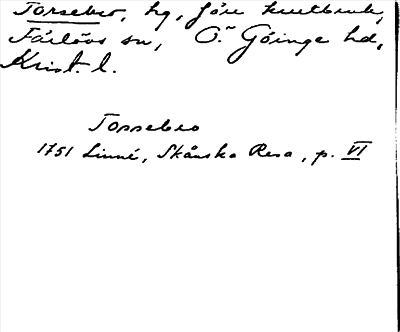 Torsebro, hg, före krutbruk,
Färlövs sn, Ö. Göinge hd,
Krist. l.
Torsebro
1751 Linné, Skånska Resa, p. VI